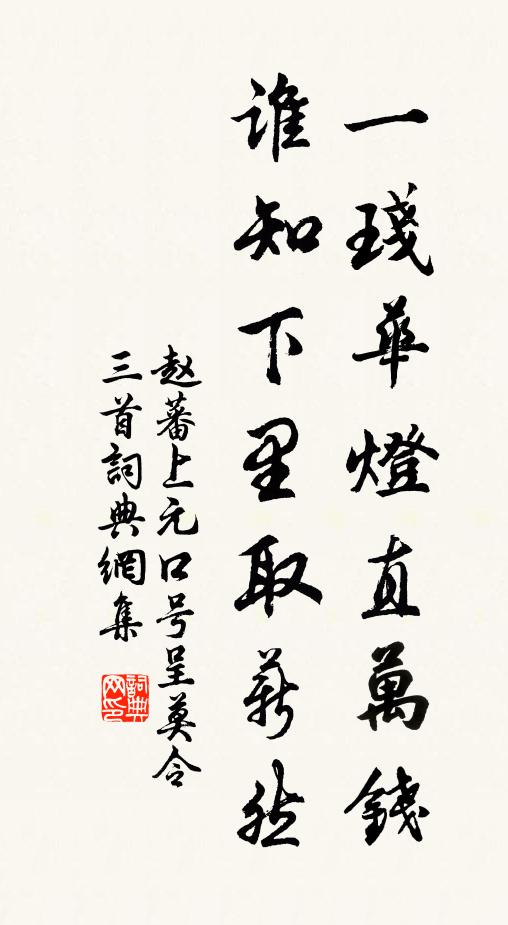 一琖華燈直萬錢
誰知下里取薪然
赵蕃上元口号呈莫令
三首詞典網集
詞典网印